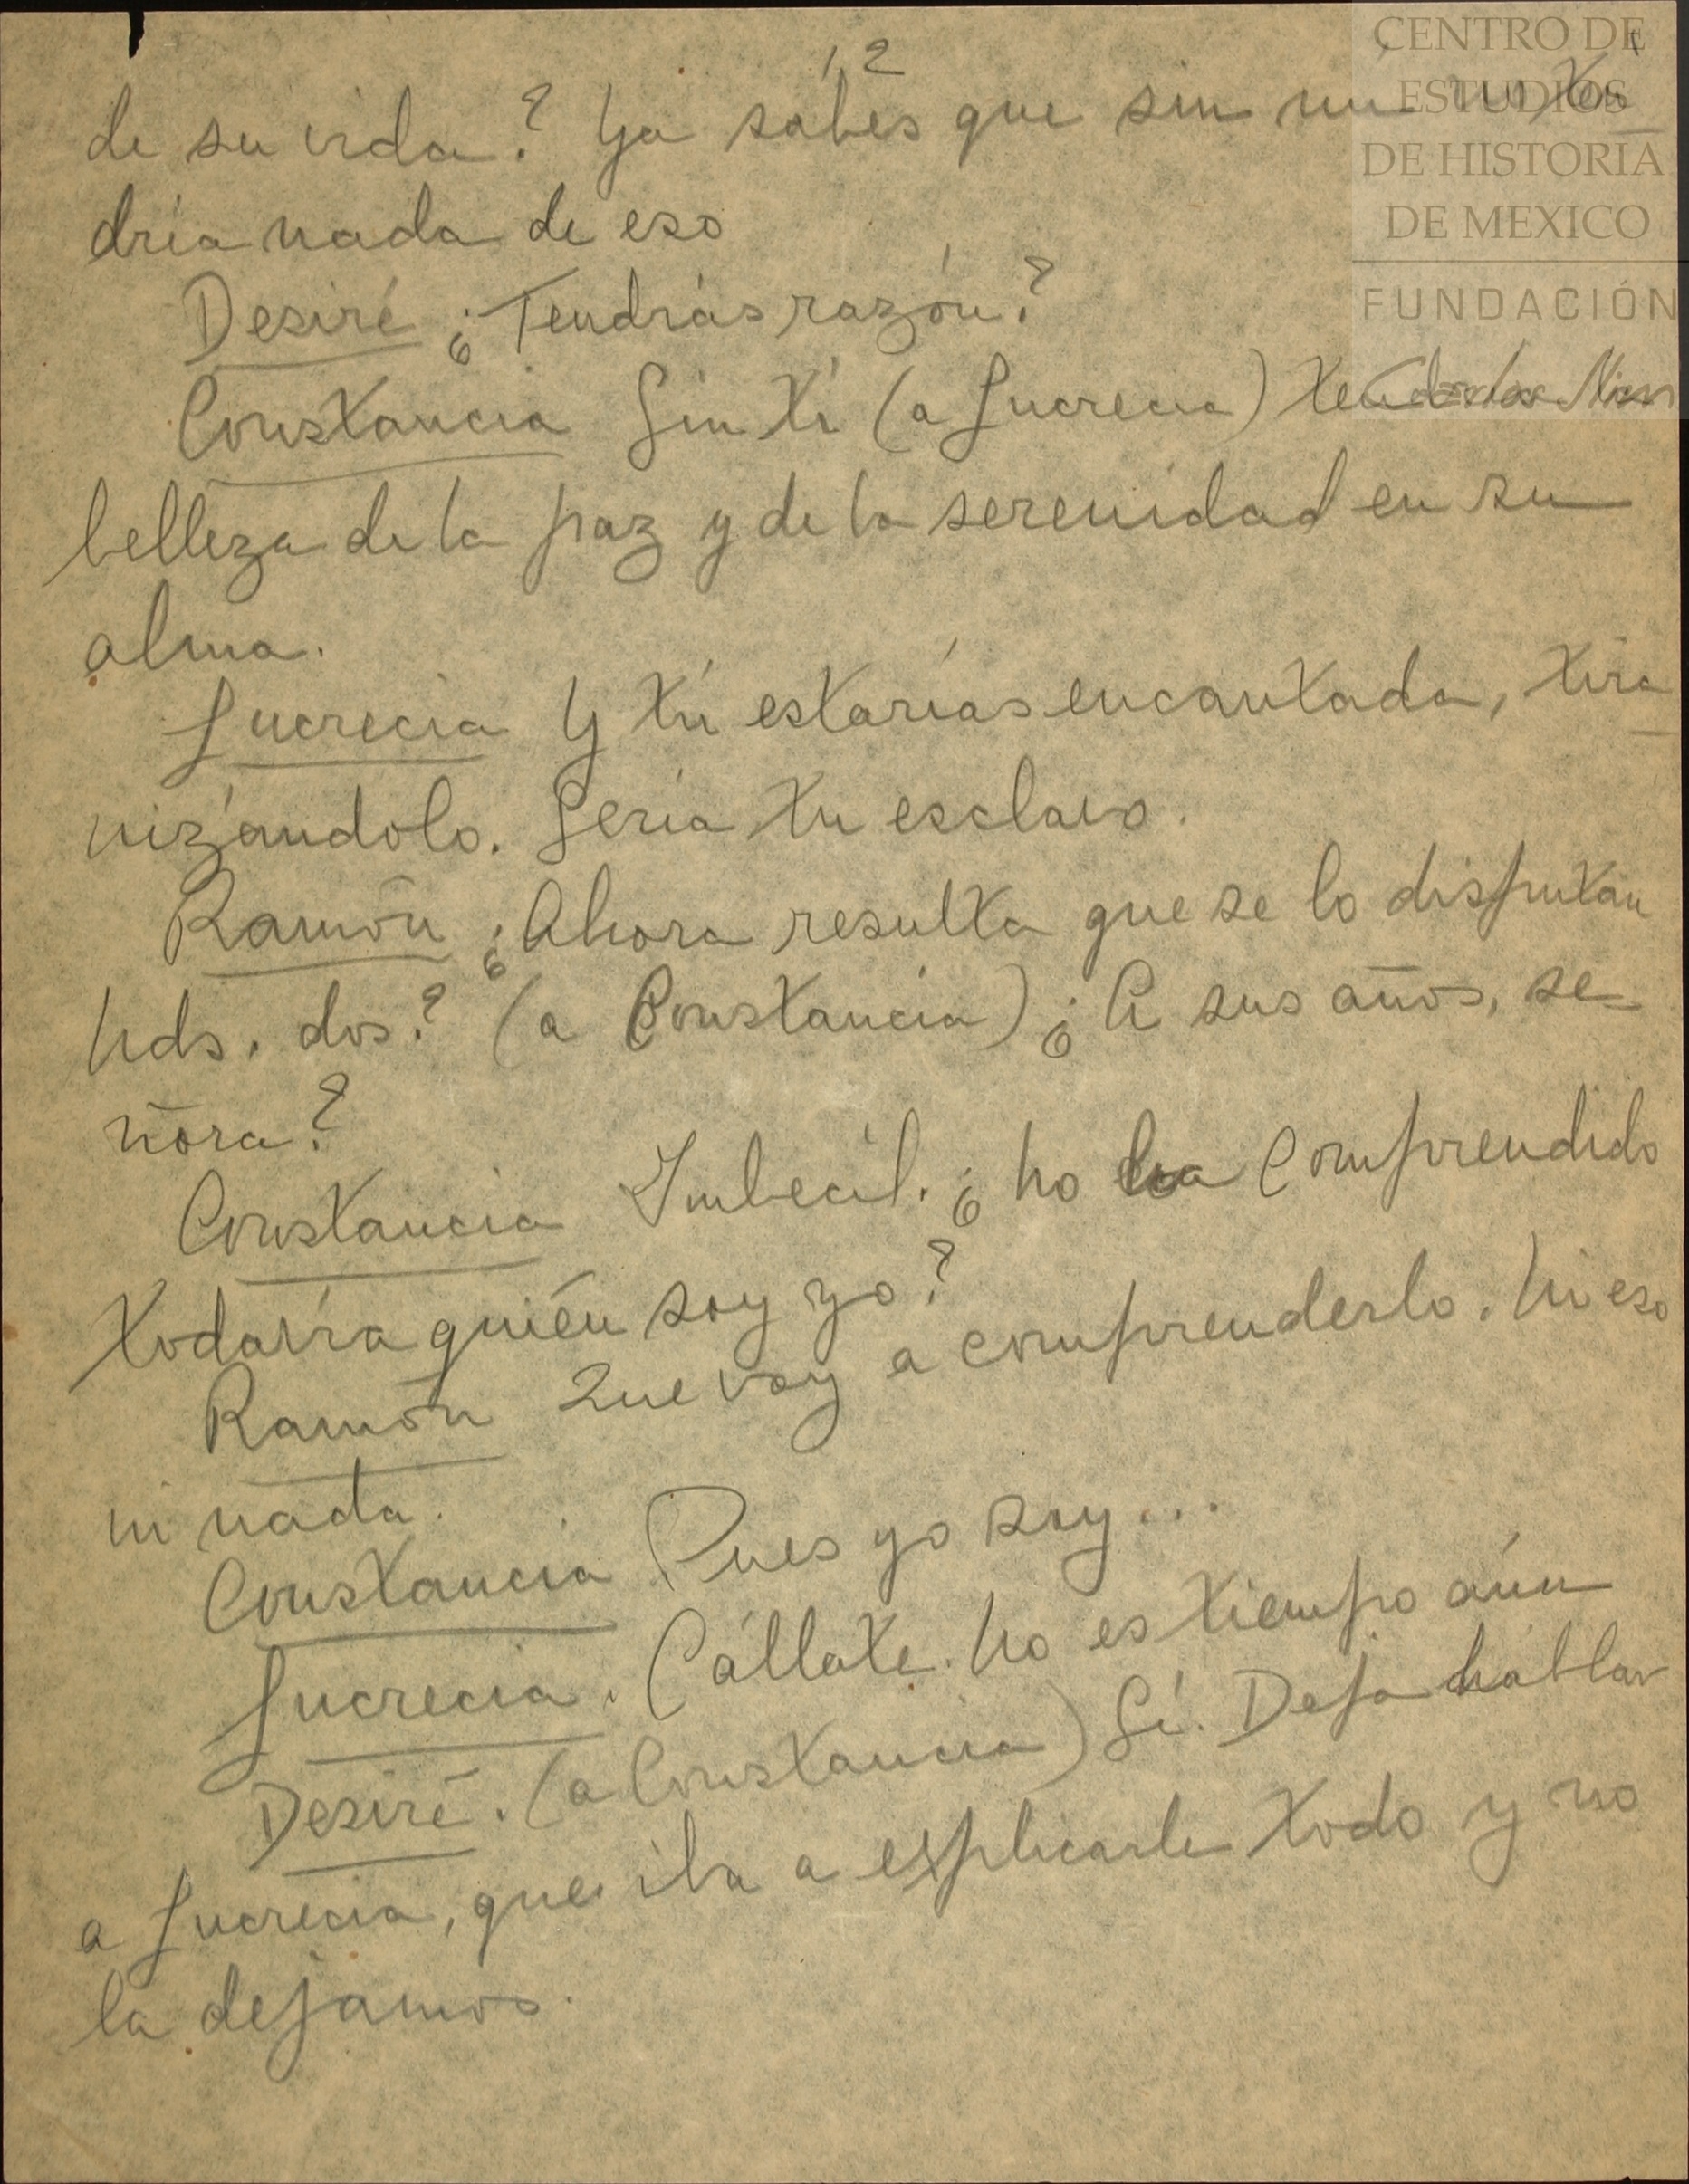 12
de su vida? Ya sabes que sin mí no ten
dría nada de eso
Desiré ¿Tendrás razón?
Constancia Sin tí (a Lucrecia)
belleza de la paz y de la serenidad en su
alma.
Lucrecia Y tú estarías encantada, tira
nizándolo. Sería tu esclavo.
Ramón ¿Ahora resulta que se lo disputan
Uds. dos? (a Constancia) ¿A sus años, se-
ñora?
Constancia Imbecil. ¿No ha comprendido
todavía quién soy yo?
Ramón Que voy a comprenderlo. Ni eso
ni nada.
Constancia Pues yo soy...
Lucrecia. Cállate. No es tiempo aún
Desiré. (a Constancia) Sí. Deja hablar
a Lucrecia, que iba a explicarle todo y no
la dejamos.
CENTRO DE
ESTUDIOS
DE HISTORIA
DE MEXICO
FUNDACIÓN